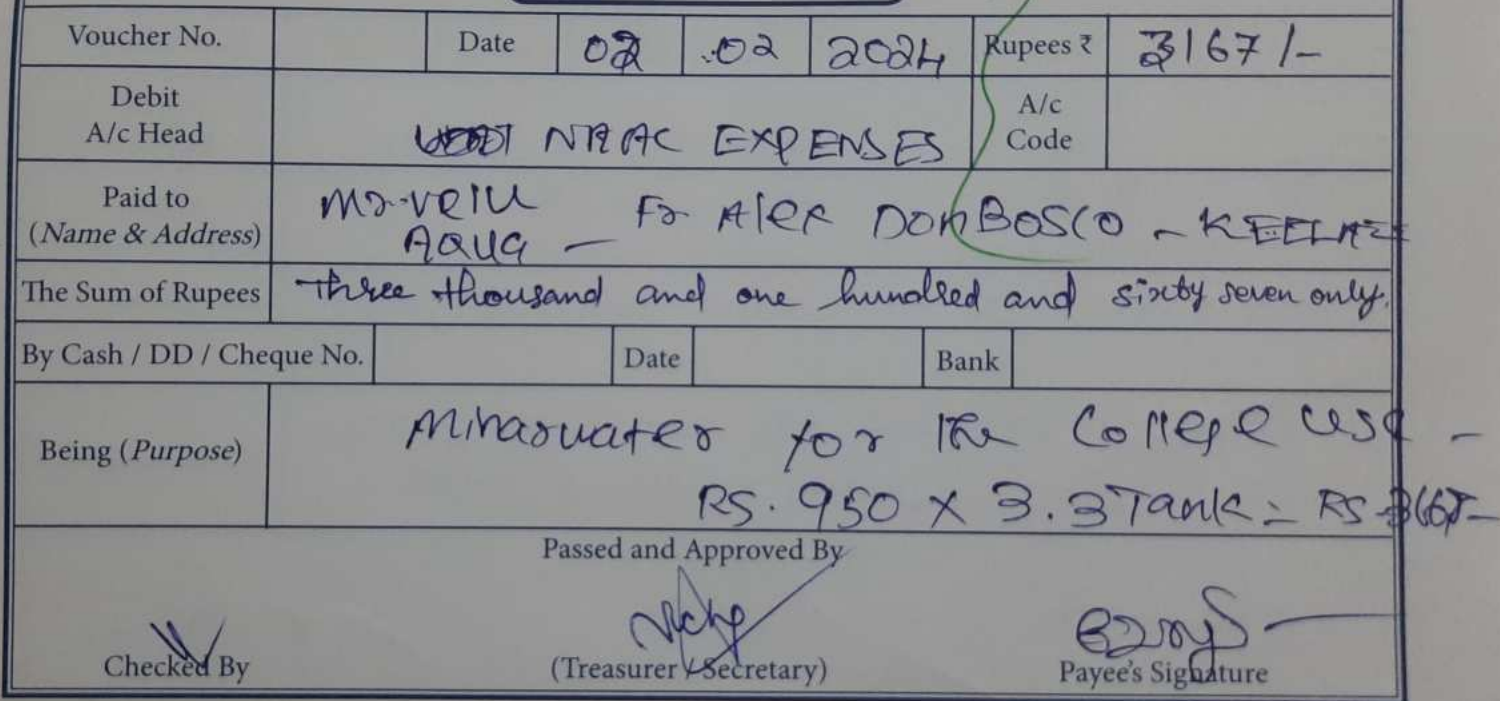 Voucher No. Date 02 .02 2024 Rupees ₹ 3167/-
Debit A/c Head NAAC EXPENSES A/c Code
Paid to (Name & Address) Mr. Velu Aqua - Fr Alex DON BOSCO -
The Sum of Rupees Three thousand and one hundred and sixty seven only.
By Cash / DD / Cheque No. Date Bank
Being (Purpose) for the College use -
RS. 950 X 3.3 Tank = RS
Passed and Approved By
Checked By (Treasurer / Secretary) Payee's Signature